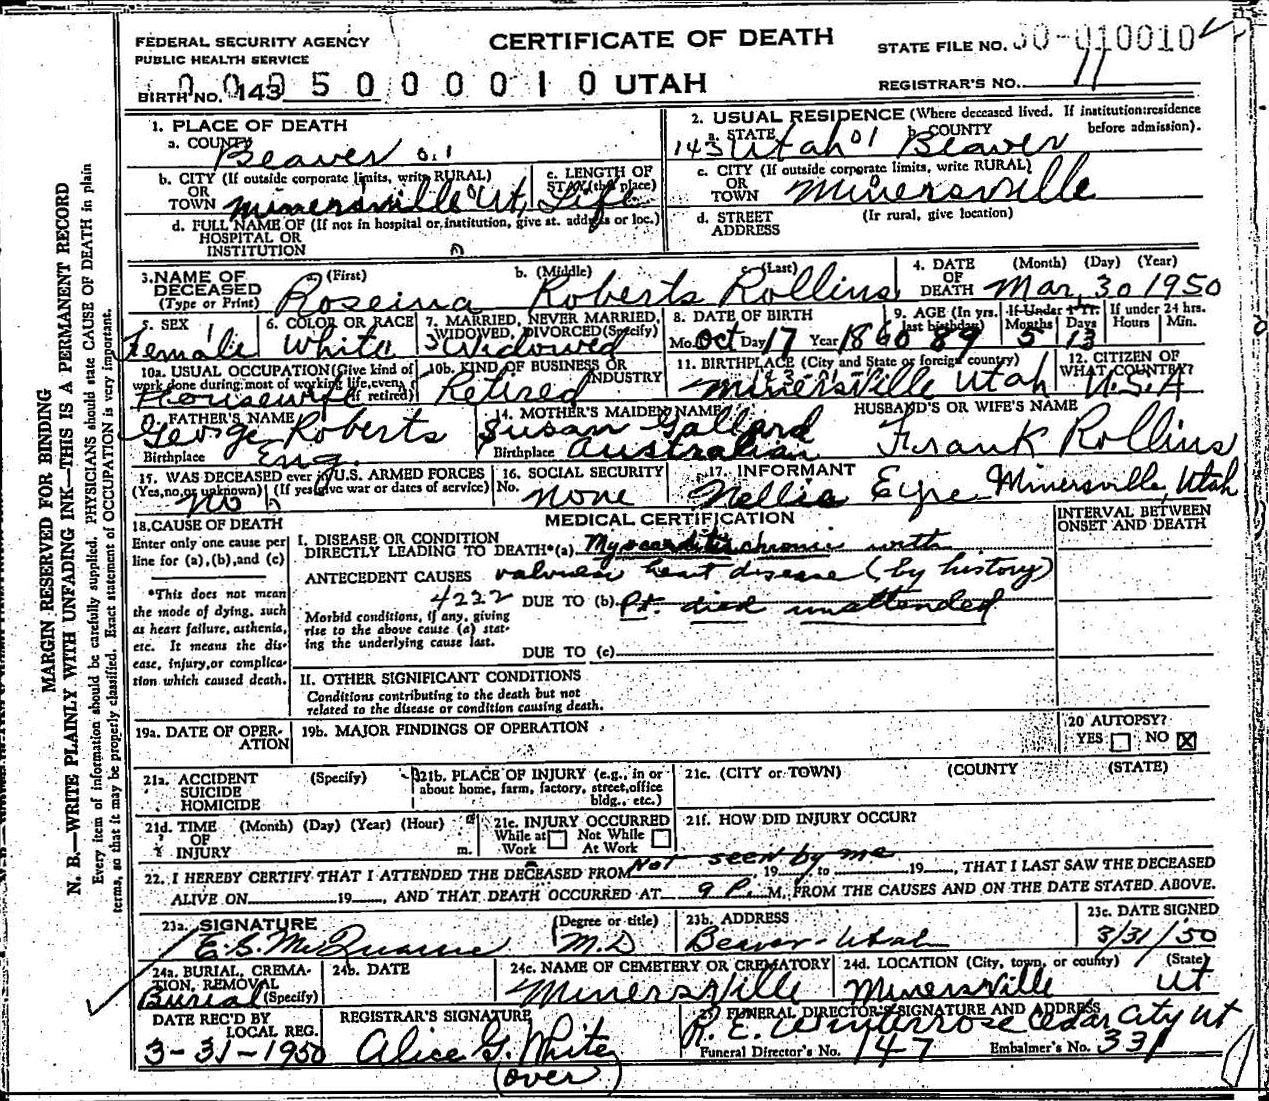 FEDERAL SECURITY AGENCY
PUBLIC HEALTH SERVICE
CERTIFICATE OF DEATH
UTAH
STATE FILE NO. 50-010010
REGISTRAR'S NO. 11
BIRTH NO. 143 5 0 0 0 0 1 0
1. PLACE OF DEATH
a. COUNTY Beaver 0.1
b. CITY (If outside corporate limits, write RURAL)
OR
TOWN Minersville Ut.
c. LENGTH OF
STAY (this place)
Life
d. FULL NAME OF (If not in hospital or institution, give st. address or loc.)
HOSPITAL OR
INSTITUTION
2. USUAL RESIDENCE (Where deceased lived. If institution: residence
before admission).
a. STATE 143 Utah 01 b. COUNTY Beaver
c. CITY (If outside corporate limits, write RURAL)
OR
TOWN Minersville
d. STREET (If rural, give location)
ADDRESS
3. NAME OF
DECEASED
(Type or Print)
(First) b. (Middle) c. (Last)
Roseina Roberts Rollins
4. DATE
OF
DEATH
(Month) (Day) (Year)
Mar. 30 1950
5. SEX
Female
6. COLOR OR RACE
White
7. MARRIED, NEVER MARRIED,
WIDOWED, DIVORCED (Specify)
3 Widowed
8. DATE OF BIRTH
Mo. Oct Day 17 Year 1860
9. AGE (In yrs.
last birthday)
89
If Under 1 Yr.
Months Days
5 13
If under 24 hrs.
Hours Min.
10a. USUAL OCCUPATION (Give kind of
work done during most of working life, even
if retired)
Housewife
10b. KIND OF BUSINESS OR
INDUSTRY
Retired
11. BIRTHPLACE (City and State or foreign country)
Minersville Utah
12. CITIZEN OF
WHAT COUNTRY?
U.S.A
FATHER'S NAME
George Roberts
Birthplace Eng.
14. MOTHER'S MAIDEN NAME
Susan Gallard
Birthplace Australian
HUSBAND'S OR WIFE'S NAME
Frank Rollins
15. WAS DECEASED ever in U.S. ARMED FORCES
(Yes, no, or unknown) (If yes give war or dates of service)
No
16. SOCIAL SECURITY
No. none
17. INFORMANT
Nellie Eyre Minersville, Utah
18. CAUSE OF DEATH
Enter only one cause per
line for (a), (b), and (c)
*This does not mean
the mode of dying, such
as heart failure, asthenia,
etc. It means the dis-
ease, injury, or complica-
tion which caused death.
MEDICAL CERTIFICATION
INTERVAL BETWEEN
ONSET AND DEATH
I. DISEASE OR CONDITION
DIRECTLY LEADING TO DEATH* (a) Myocarditis chronic with
ANTECEDENT CAUSES valvular heart disease (by history)
4222 DUE TO (b) Pt. died unattended
Morbid conditions, if any, giving
rise to the above cause (a) stat-
ing the underlying cause last.
DUE TO (c)
II. OTHER SIGNIFICANT CONDITIONS
Conditions contributing to the death but not
related to the disease or condition causing death.
19a. DATE OF OPER-
ATION
19b. MAJOR FINDINGS OF OPERATION
20 AUTOPSY?
YES NO X
21a. ACCIDENT (Specify)
SUICIDE
HOMICIDE
21b. PLACE OF INJURY (e.g., in or
about home, farm, factory, street, office
bldg., etc.)
21c. (CITY or TOWN) (COUNTY) (STATE)
21d. TIME (Month) (Day) (Year) (Hour)
OF
INJURY m.
21e. INJURY OCCURRED
While at Not While
Work At Work
21f. HOW DID INJURY OCCUR?
Not seen by me
22. I HEREBY CERTIFY THAT I ATTENDED THE DECEASED FROM 19 , to 19 , THAT I LAST SAW THE DECEASED
ALIVE ON 19 , AND THAT DEATH OCCURRED AT 9 P. M, FROM THE CAUSES AND ON THE DATE STATED ABOVE.
23a. SIGNATURE (Degree or title)
E.S. McQuarrie M.D
23b. ADDRESS
Beaver - Utah
23c. DATE SIGNED
3/31/50
24a. BURIAL, CREMA-
TION, REMOVAL
Burial (Specify)
24b. DATE
24c. NAME OF CEMETERY OR CREMATORY
Minersville
24d. LOCATION (City, town, or county) (State)
Minersville Ut
DATE REC'D BY
LOCAL REG.
3-31-1950
REGISTRAR'S SIGNATURE
Alice G. White
(over)
25. FUNERAL DIRECTOR'S SIGNATURE AND ADDRESS
R. E. Winterrose Cedar City Ut
Funeral Director's No. 147 Embalmer's No. 331
MARGIN RESERVED FOR BINDING
N. B.—WRITE PLAINLY WITH UNFADING INK—THIS IS A PERMANENT RECORD
Every item of information should be carefully supplied. PHYSICIANS should state CAUSE OF DEATH in plain
terms, so that it may be properly classified. Exact statement of OCCUPATION is very important.